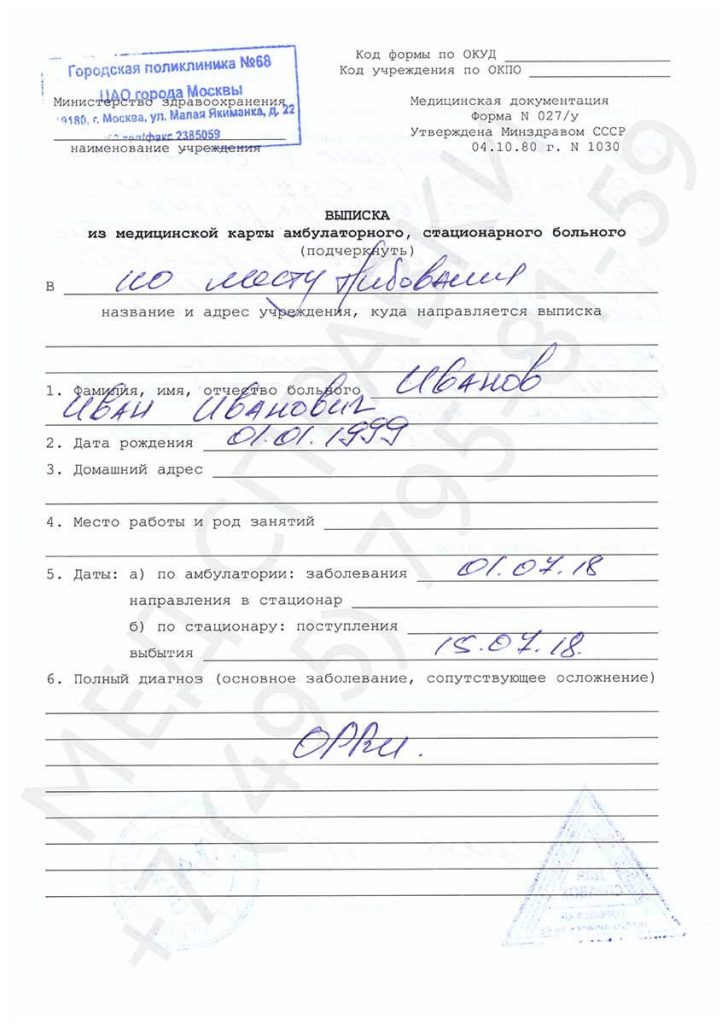 Городская поликлиника №68
ЦАО города Москвы
Министерство здравоохранения
г. Москва, ул. Малая Якиманка, д. 22
тел/факс 2385059
наименование учреждения
Код формы по ОКУД
Код учреждения по ОКПО
Медицинская документация
Форма N 027/у
Утверждена Минздравом СССР
04.10.80 г. N 1030
ВЫПИСКА
из медицинской карты амбулаторного, стационарного больного
(подчеркнуть)
В по месту требования
название и адрес учреждения, куда направляется выписка
1. Фамилия, имя, отчество больного Иванов
Иван Иванович
2. Дата рождения 01.01.1999
3. Домашний адрес
4. Место работы и род занятий
5. Даты: а) по амбулатории: заболевания 01.07.18
направления в стационар
б) по стационару: поступления
выбытия 15.07.18.
6. Полный диагноз (основное заболевание, сопутствующее осложнение)
ОРВИ.
МЕД СПРАВКИ
+7(495) 795-81-59
ДЛЯ
СПРАВОК